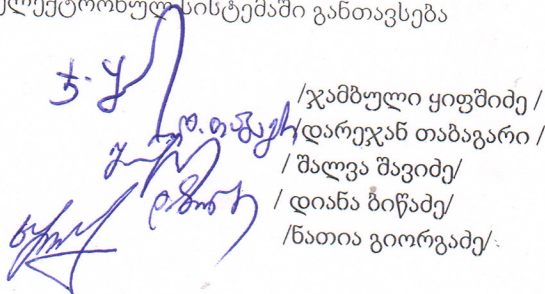 ელექტრონულ სისტემაში განთავსება
/ჯამბული ყიფშიძე /
დ. თაბაგ /დარეჯან თაბაგარი /
/ შალვა შავიძე/
/ დიანა ბიწაძე/
/ნათია გიორგაძე/